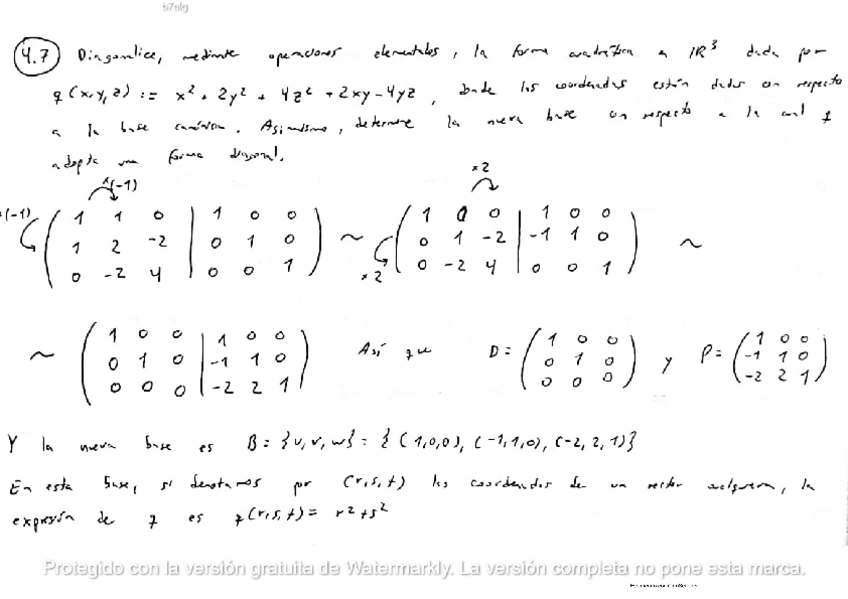 b7alg
4.7 Diagonalice, mediante operaciones elementales, la forma cuadrática en IR³ dada por
q(x,y,z) := x² + 2y² + 4z² + 2xy - 4yz, donde las coordenadas están dadas con respecto
a la base canónica. Asimismo, determine la nueva base con respecto a la cual q
adopta una forma diagonal.
x(-1) x2
x(-1) ( 1 1 0 | 1 0 0 ) ~ ( 1 0 0 | 1 0 0 ) ~
( 1 2 -2 | 0 1 0 ) ( 0 1 -2 | -1 1 0 )
( 0 -2 4 | 0 0 1 ) x2 ( 0 -2 4 | 0 0 1 )
~ ( 1 0 0 | 1 0 0 ) Así que D = ( 1 0 0 ) y P = ( 1 0 0 )
( 0 1 0 | -1 1 0 ) ( 0 1 0 ) ( -1 1 0 )
( 0 0 0 | -2 2 1 ) ( 0 0 0 ) ( -2 2 1 )
Y la nueva base es B = {u, v, w} = { (1,0,0), (-1,1,0), (-2,2,1)}
En esta base, si denotamos por (r,s,t) las coordenadas de un vector cualquiera, la
expresión de q es q(r,s,t) = r² + s²
Protegido con la versión gratuita de Watermarkly. La versión completa no pone esta marca.